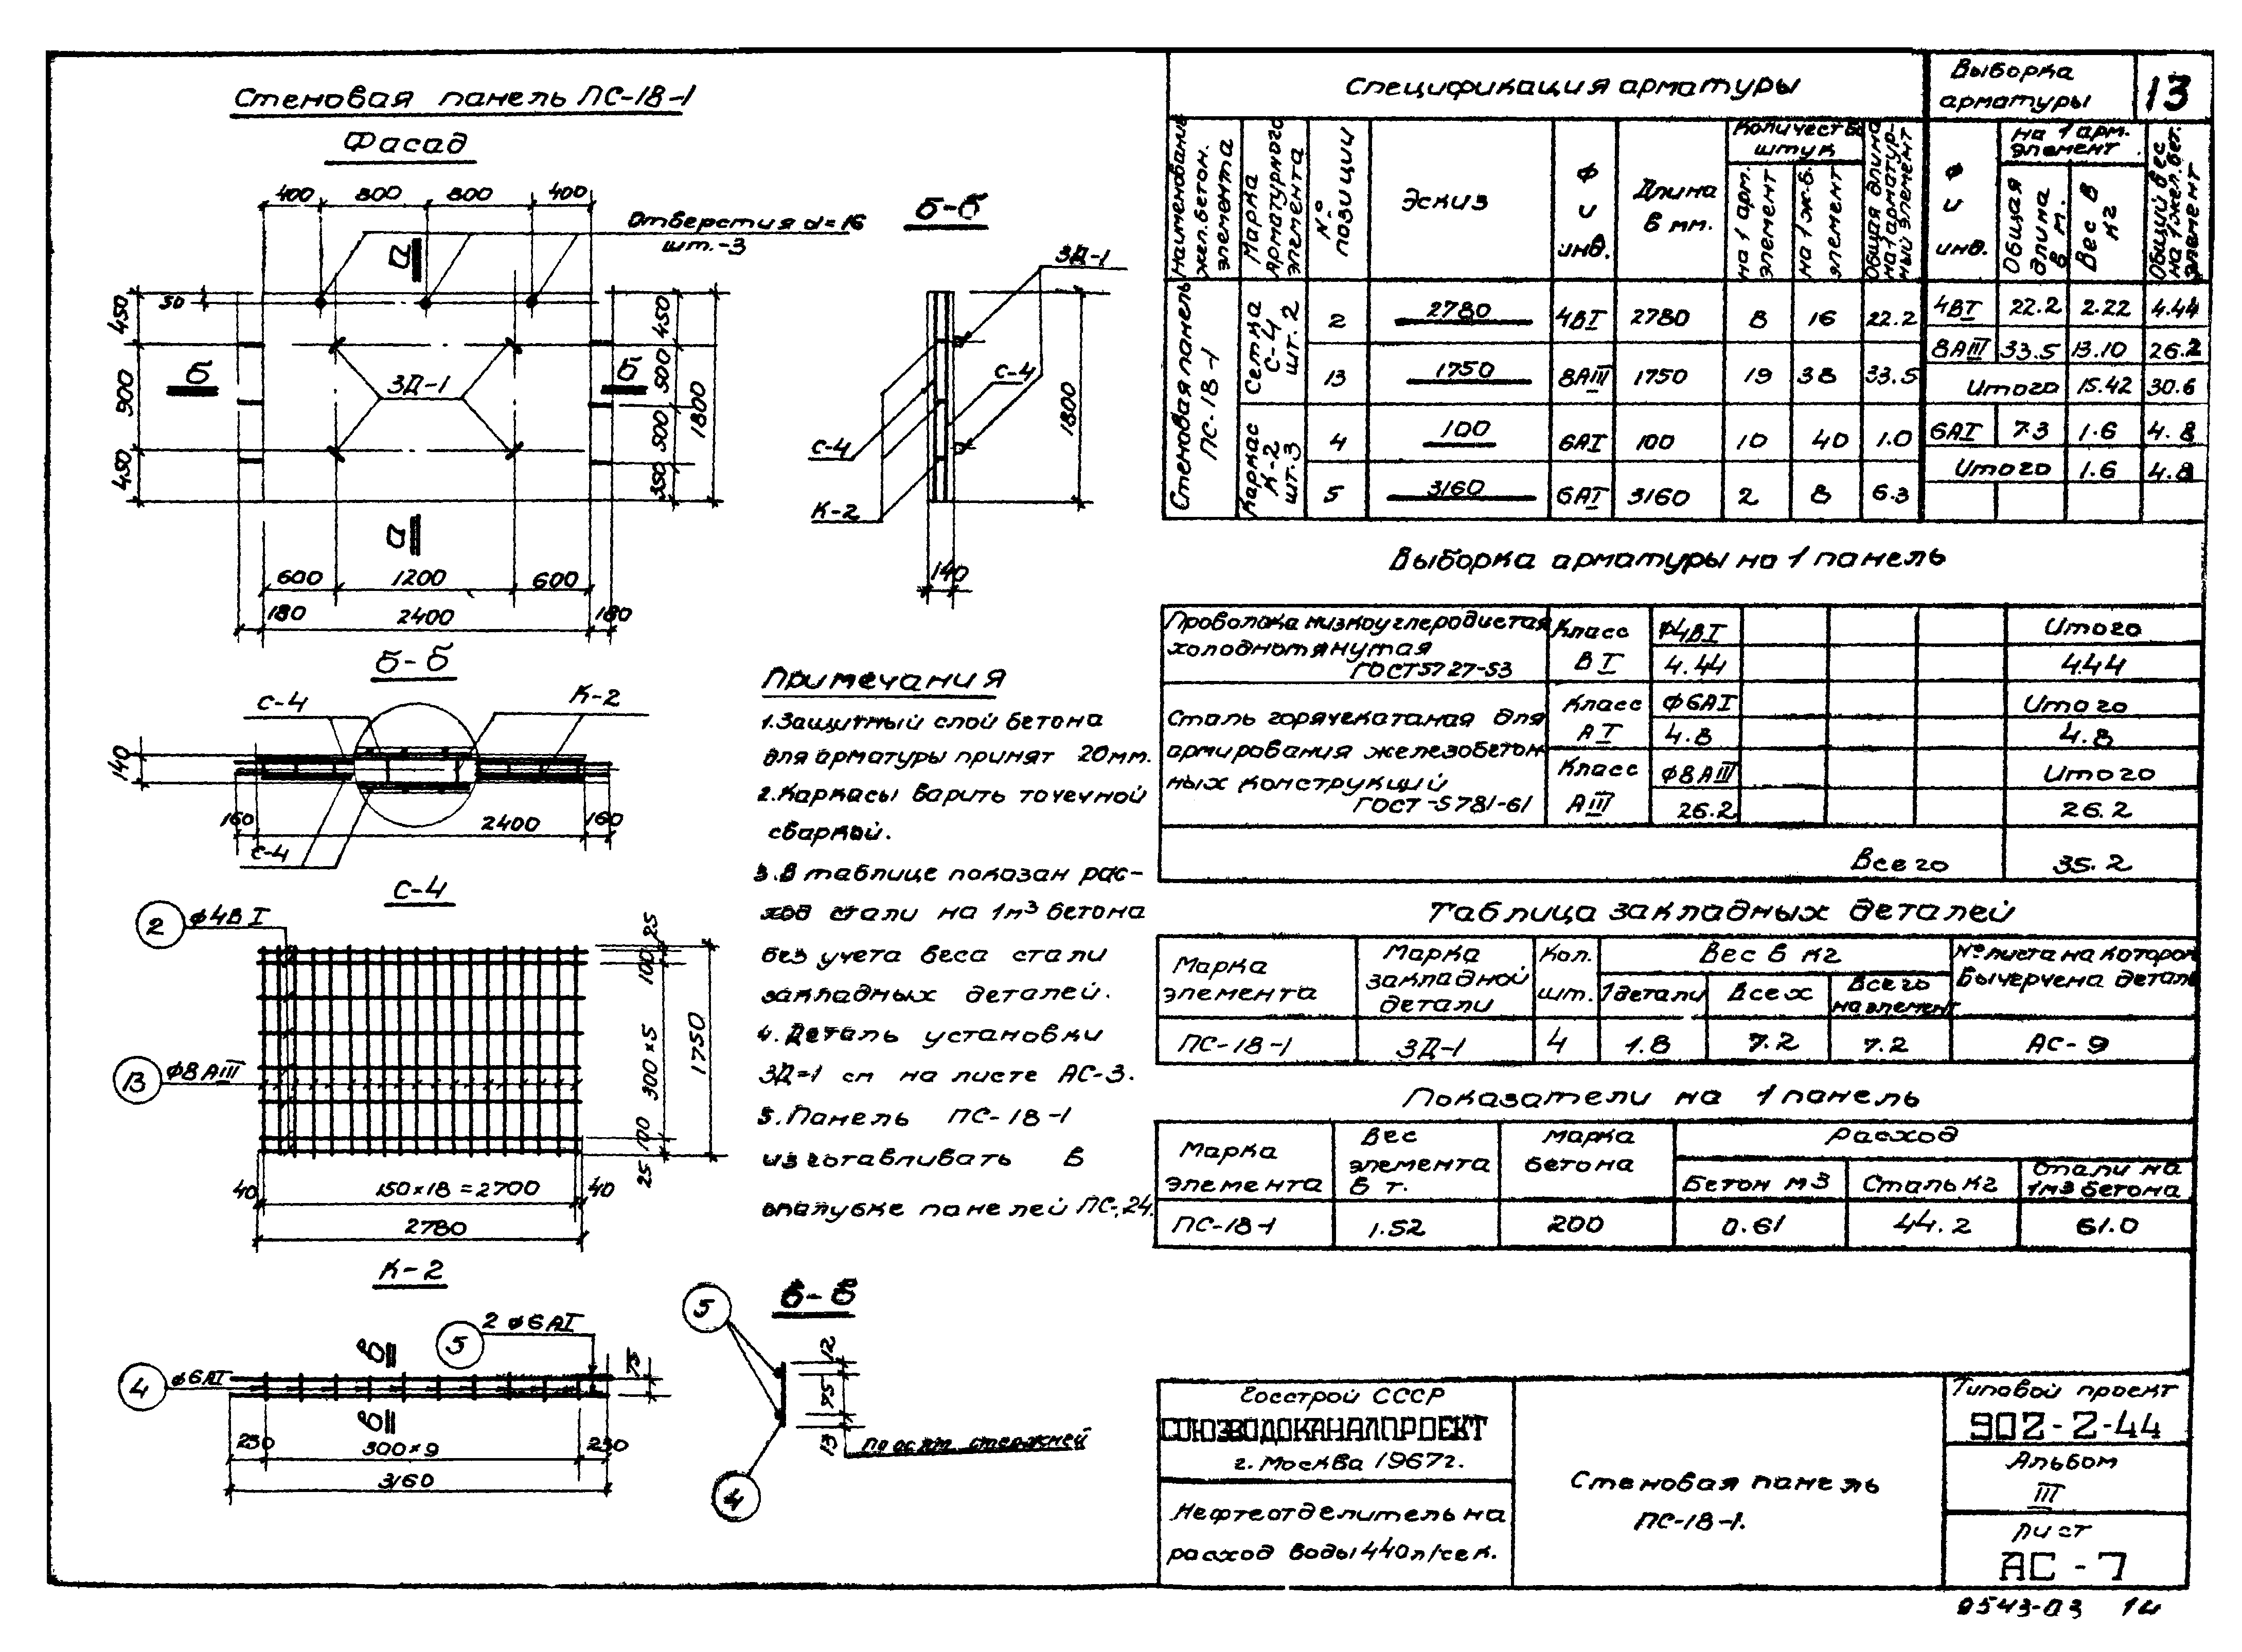 Стеновая панель ПС-18-1
Фасад
400 800 800 400
Отверстия d=16
шт.-3
а
50
450 900 450
450 500 500 350
1800
Б Б
ЗД-1
а
600 1200 600
180 2400 180
Б-Б
ЗД-1
С-4
С-4
К-2
1800
140
Б-Б
С-4 К-2
140
160 2400 160
С-4
С-4
2 ф4ВI
13 ф8АIII
25
100
300×5
100
25
1750
40 150×18=2700 40
2780
К-2
4 ф6АI
5 2ф6АI
в
в
75
250 300×9 250
3160
в-в
5
12
75
13
4
Примечания
1.Защитный слой бетона
для арматуры принят 20мм.
2.Каркасы варить точечной
сваркой.
3.В таблице показан рас-
ход стали на 1м³ бетона
без учета веса стали
закладных деталей.
4.Деталь установки
ЗД-1 см на листе АС-3.
5.Панель ПС-18-1
изготавливать в
опалубке панелей ПС-24.
Спецификация арматуры
Выборка
арматуры
13
Наименование жел.бетон. элемента
Марка арматурного элемента
№ позиции
Эскиз
ф и инд.
Длина в мм.
Количество штук
на 1 арм. элемент
на 1 ж-б. элемент
Общая длина на 1 арматур-ный элемент
ф и инд.
на 1 арм. элемент
Общая длина в м.
Вес в кг
Общий вес на 1 жел.бет. элемент
Стеновая панель ПС-18-1
Сетка С-4 шт.2
2 2780 4ВI 2780 8 16 22.2
13 1750 8АIII 1750 19 38 33.5
Каркас К-2 шт.3
4 100 6АI 100 10 40 1.0
5 3160 6АI 3160 2 8 6.3
4ВI 22.2 2.22 4.44
8АIII 33.5 13.10 26.2
Итого 15.42 30.6
6АI 7.3 1.6 4.8
Итого 1.6 4.8
Выборка арматуры на 1 панель
Проволока низкоуглеродистая
холоднотянутая
ГОСТ 5727-53
Класс ВI ф4ВI Итого
4.44 4.44
Сталь горячекатаная для
армирования железобетон
ных конструкций
ГОСТ-5781-61
Класс АI ф6АI Итого
4.8 4.8
Класс АIII ф8АIII Итого
26.2 26.2
Всего 35.2
Таблица закладных деталей
Марка элемента
Марка закладной детали
Кол. шт.
Вес в кг
1 детали Всех Всего на элемент
№ листа на котором
Вычерчена деталь
ПС-18-1 ЗД-1 4 1.8 7.2 7.2 АС-9
Показатели на 1 панель
Марка элемента
Вес элемента в т.
марка бетона
Расход
Бетон м3 Сталь кг Стали на 1м3 бетона
ПС-18-1 1.52 200 0.61 44.2 61.0
Госстрой СССР
СОЮЗВОДОКАНАЛПРОЕКТ
г. Москва 1967г.
Нефтеотделитель на
расход воды 440л/сек.
Стеновая панель
ПС-18-1.
Типовой проект
902-2-44
Альбом
III
Лист
АС-7
9543-03 14